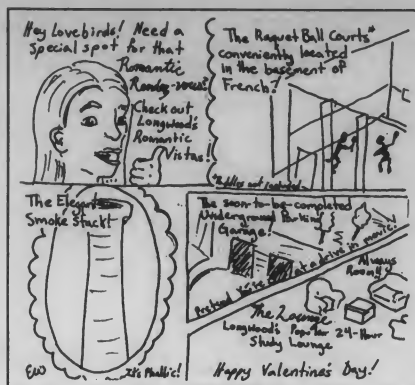 Hey Lovebirds! Need a
special spot for that
Romantic
Rendez-vous?
Check out
Longwood's
Romantic
Vistas!
The Raquet Ball Courts*
conveniently located
in the basement of
French!
*Paddles not included
The Elegant
Smoke Stack!
It's Phallic!
EW
The soon-to-be-completed
Underground Parking
Garage!
Pretend you're at a drive in movie!
Always
Room!!
The Lounge
Longwood's Popular 24-Hour
Study Lounge
Happy Valentine's Day!